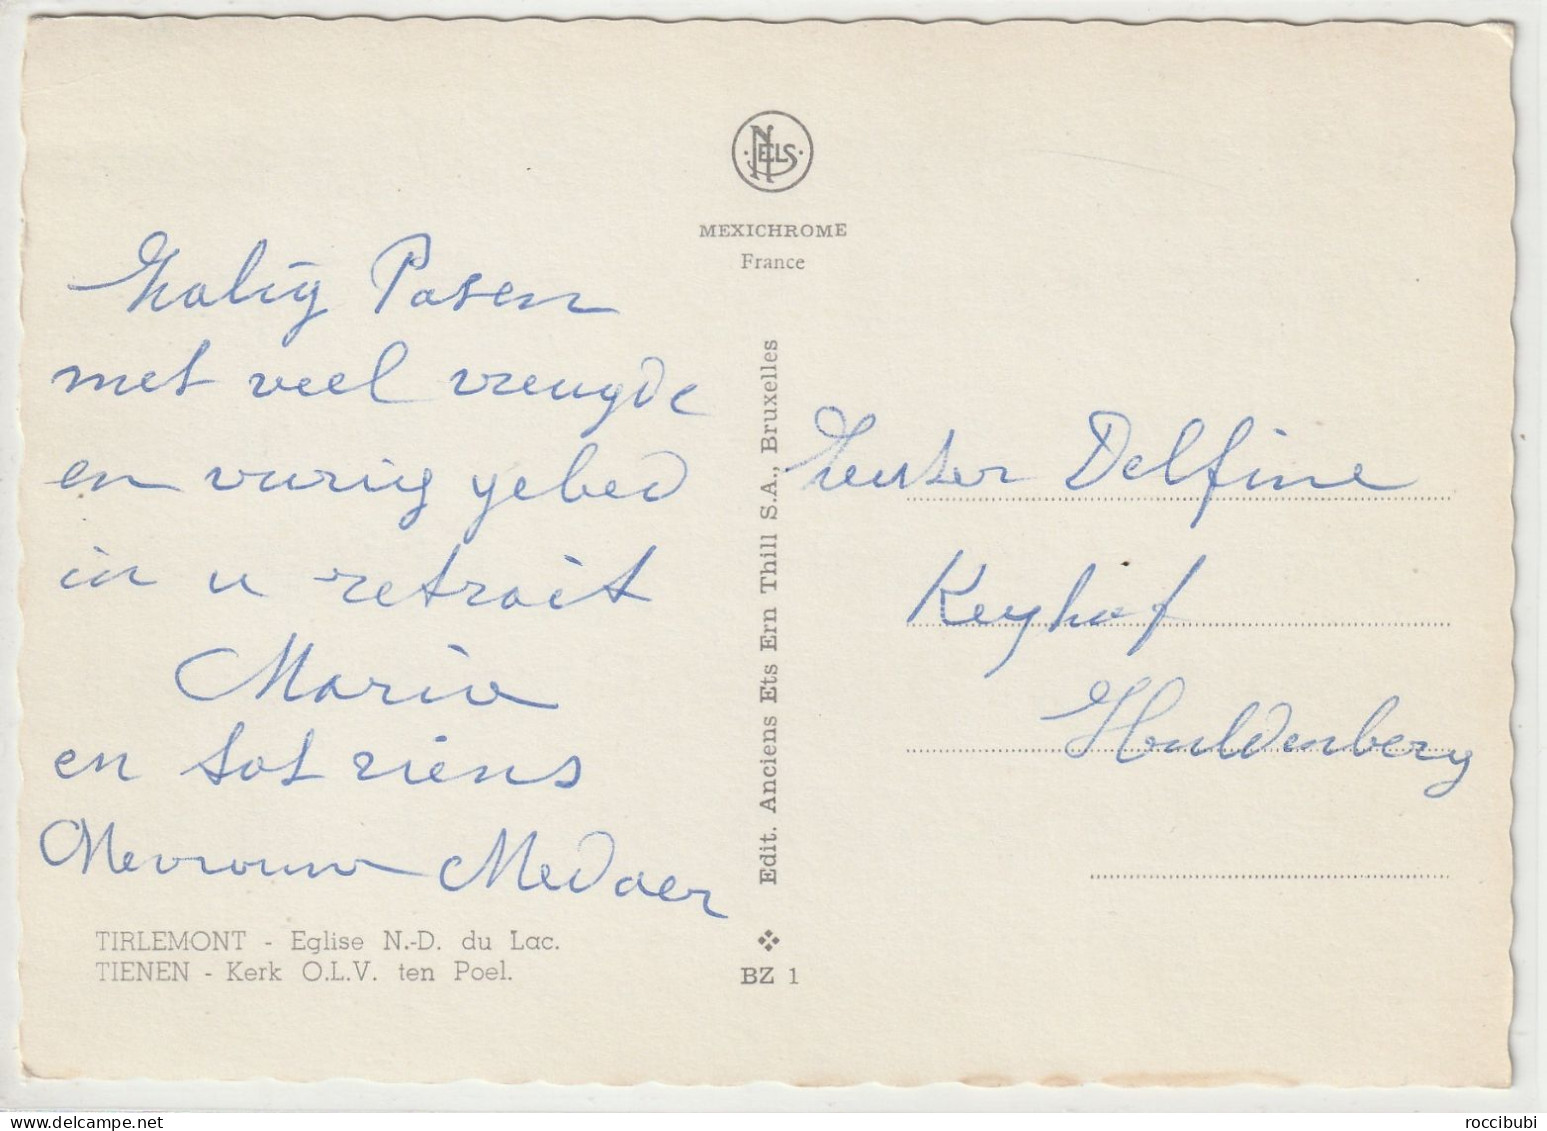 NELS
MEXICHROME
France
Zalig Pasen
met veel vreugde
en vurig gebed
in u retrait
Maria
en tot ziens
Mevrouw Medaer
Zuster Delfine
Keyhof
Huldenberg
Edit. Anciens Ets Ern Thill S.A., Bruxelles
TIRLEMONT - Eglise N.-D. du Lac.
TIENEN - Kerk O.L.V. ten Poel.
BZ 1
delcampe.net
roccibubi